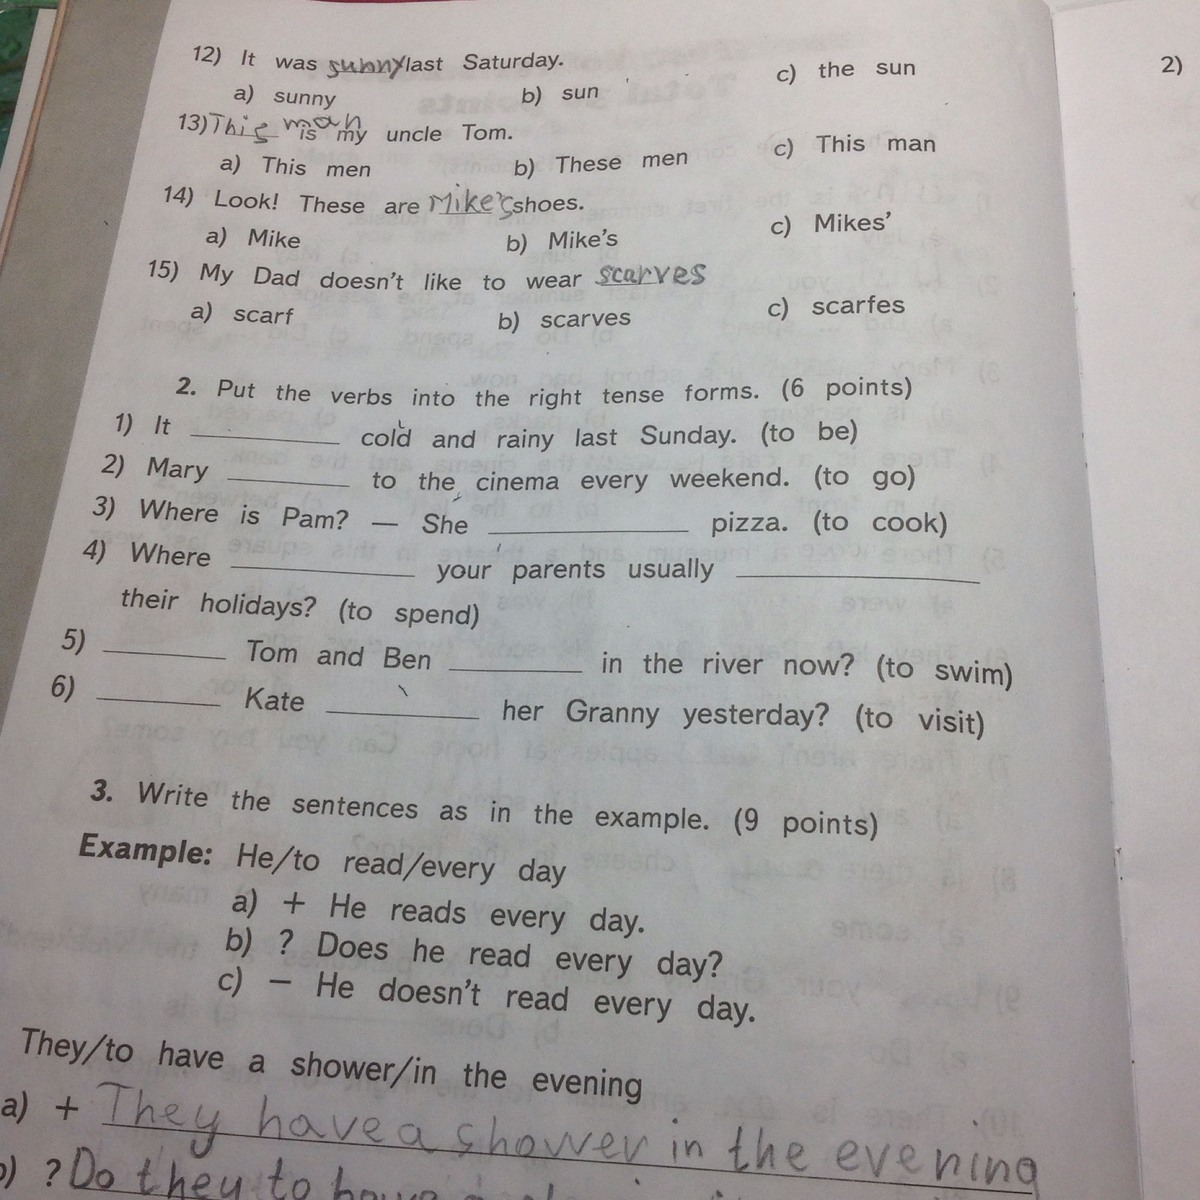 12) It was sunny last Saturday.
a) sunny b) sun c) the sun
2)
13) This man is my uncle Tom.
a) This men b) These men c) This man
14) Look! These are Mike's shoes.
a) Mike b) Mike's c) Mikes'
15) My Dad doesn't like to wear scarves
a) scarf b) scarves c) scarfes
2. Put the verbs into the right tense forms. (6 points)
1) It ________ cold and rainy last Sunday. (to be)
2) Mary ________ to the cinema every weekend. (to go)
3) Where is Pam? — She ________ pizza. (to cook)
4) Where ________ your parents usually ________
their holidays? (to spend)
5) ________ Tom and Ben ________ in the river now? (to swim)
6) ________ Kate ________ her Granny yesterday? (to visit)
3. Write the sentences as in the example. (9 points)
Example: He/to read/every day
a) + He reads every day.
b) ? Does he read every day?
c) — He doesn't read every day.
They/to have a shower/in the evening
a) + They have a shower in the evening
b) ? Do they to have a